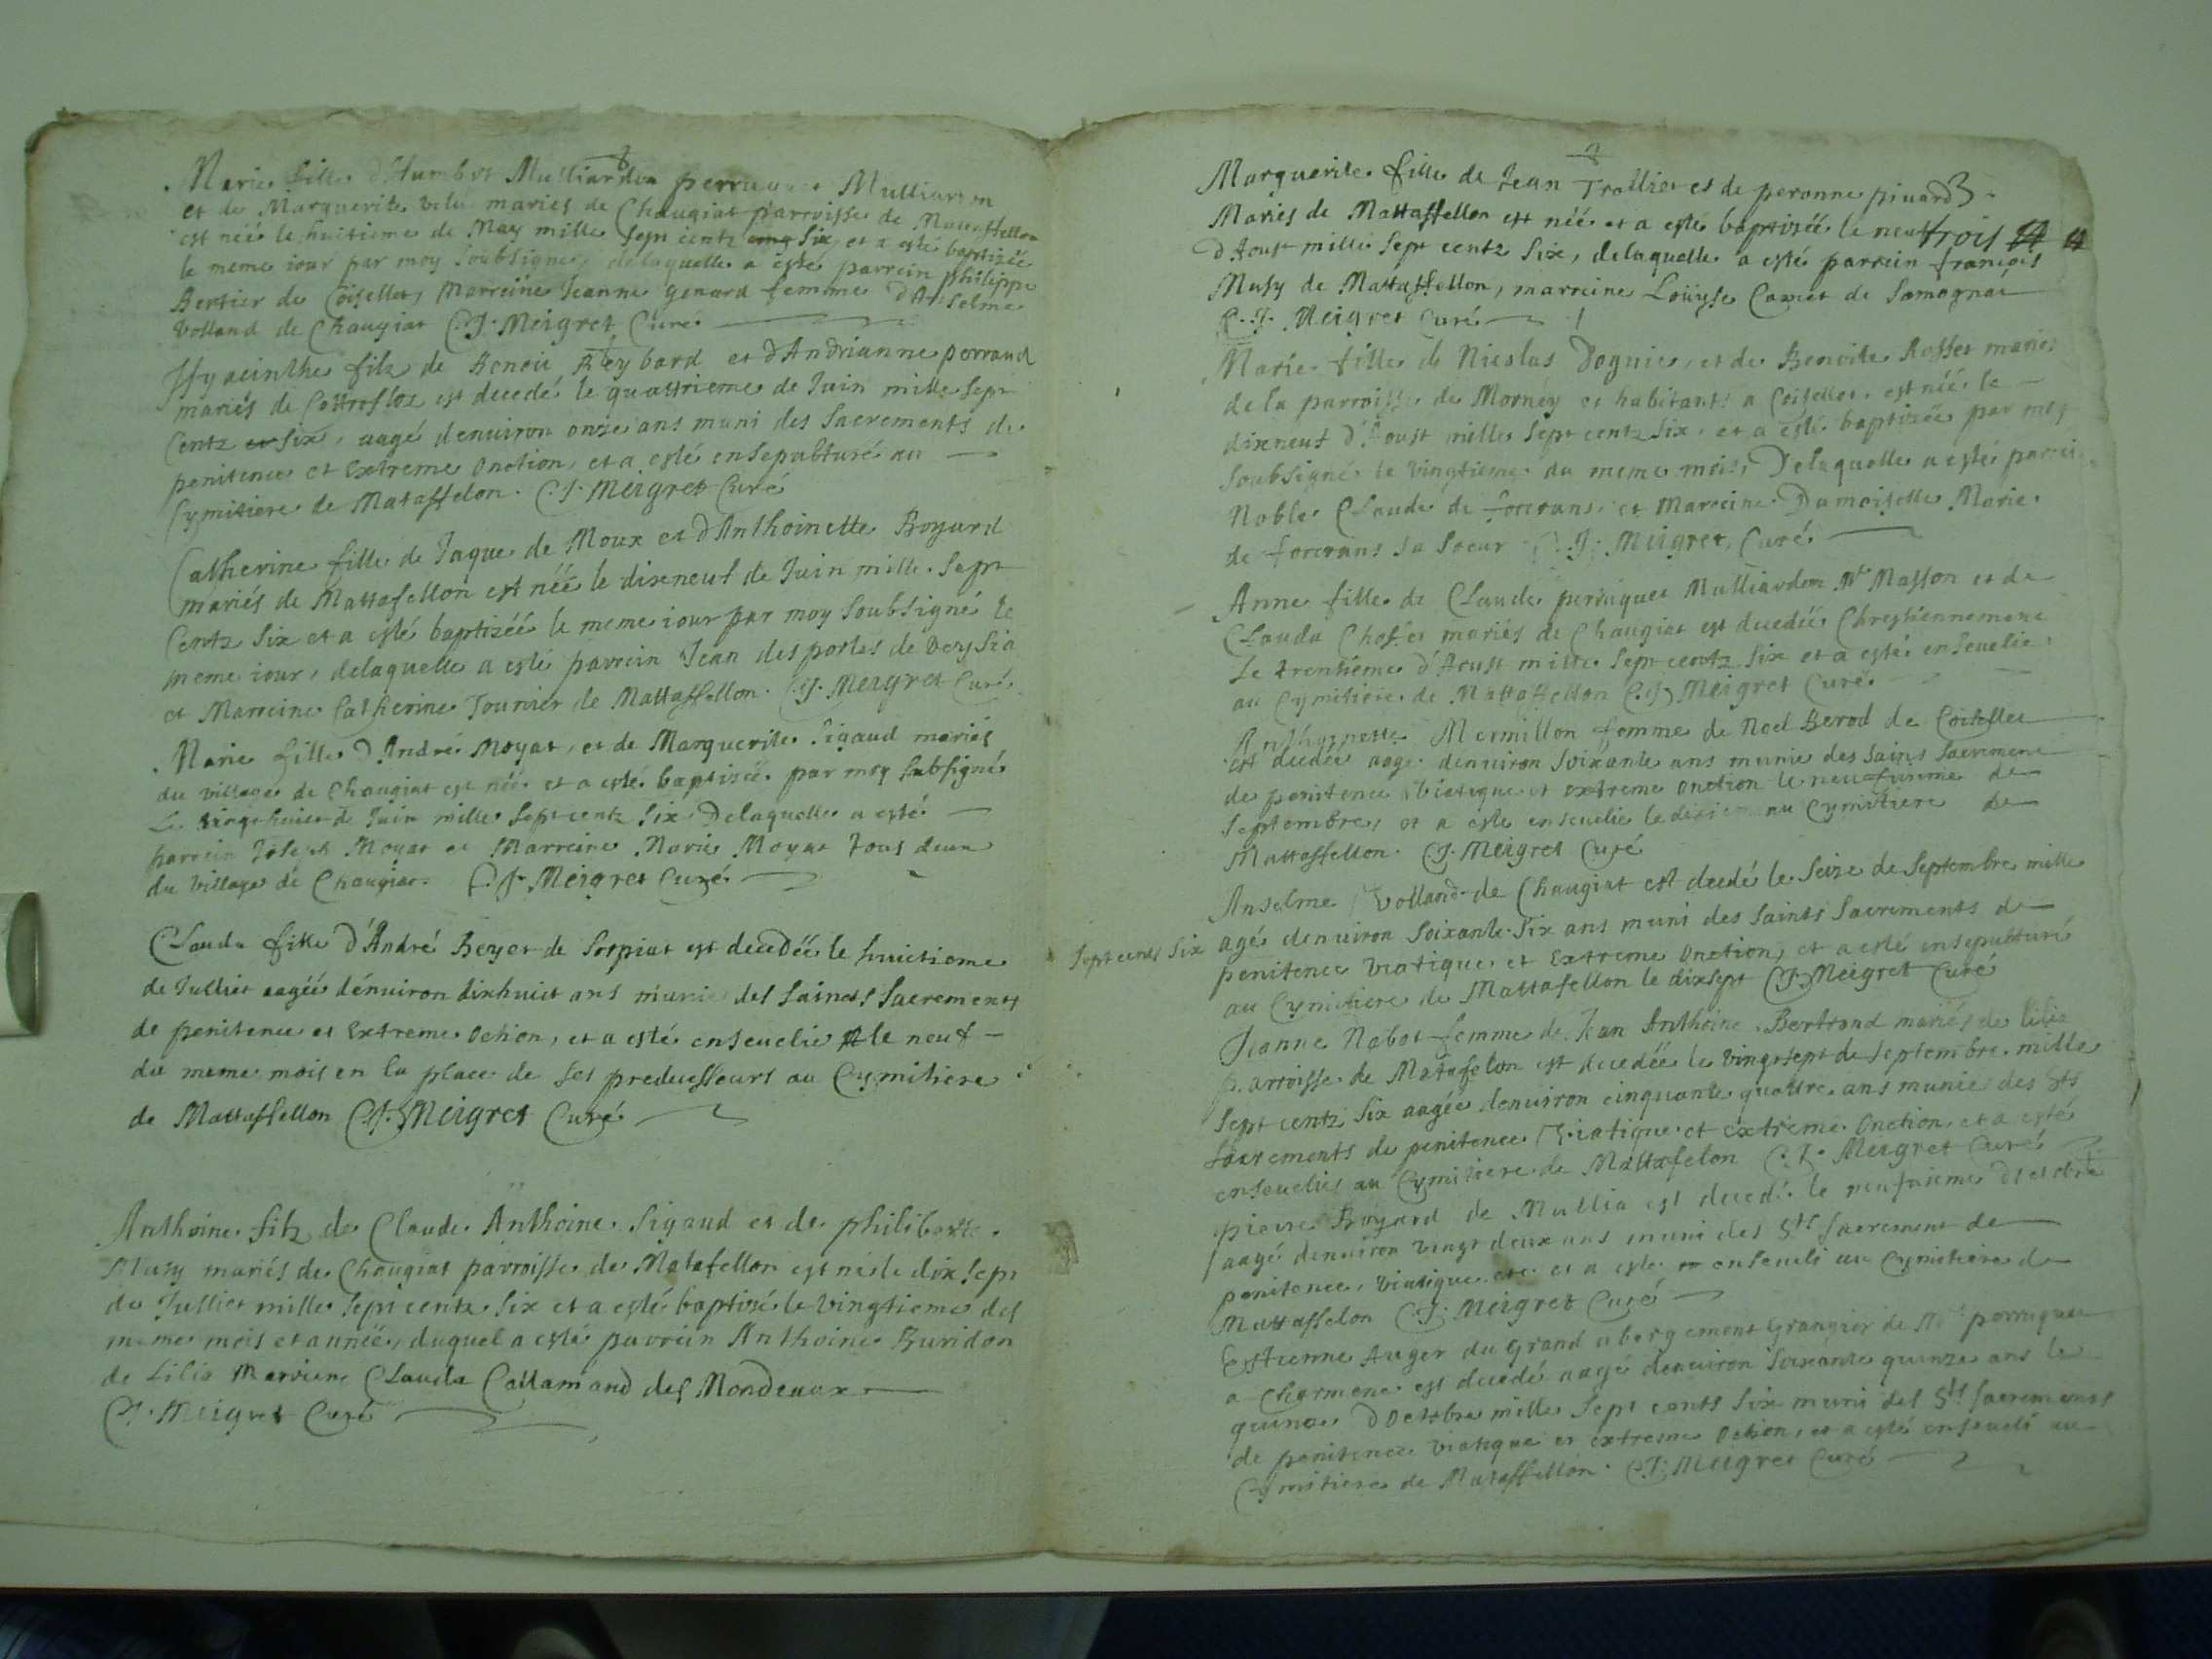 Marie fille d'Humbert Mulliardon perruquet Mulliardon
et de Marguerite velu mariés de Chaugiat parroisse de Mattaffellon
est néé le huitieme de May mille sept centz six et a esté baptizéé
le meme iour par moy soubsigné, delaquelle a esté parrein philippe
Bertier de Coisellet, Marreine Jeanne genard femme d'Anselme
volland de Chaugiat C.J. Meigret Curé
Hyacinthe filz de Benoit Reybard et d'Andrianne perraud
mariés de Cottrofloz est decedé le quattrieme de Juin mille sept
Centz six, aagé denuiron onze ans muni des Sacrements de
penitence et Extreme Onction, et a esté ensepulturé au
Cymitiere de Mataffelon. C.J. Meigret Curé
Catherine fille de Jaque de Moux et d'Anthoinette Boyard
mariés de Mattafellon est néé le dixneuf de Juin mille sept
Centz Six et a esté baptizéé le meme iour par moy soubsigné le
meme iour, delaquelle a esté parrein Jean des portes de Deyssia
et Marreine Catherine Tournier de Mattaffellon. C.J. Meigret Curé
Marie fille d'André Moyat, et de Marguerite Sigaud mariés
du village de Chaugiat est néé et a esté baptizéé par moy subsigné
Le vingt huict de Juin mille sept centz Six, Delaquelle a esté
parrein Joseph Moyat et Marreine Marie Moyat tous deux
du village de Chaugiat. C.J. Meigret Curé
Clauda fille d'André Beyet de Sorpiat est decedéé le huictieme
de Julliet aagéé dénuiron dixhuict ans munie des saincts Sacrements
de penitence et Extreme Oction, et a esté enseuelie le neuf
du meme mois en la place de ses predecesseurs au Cymitiere
de Mattaffellon C.J. Meigret Curé
Anthoine filz de Claude Anthoine Sigaud et de philiberte
Musy mariés de Chaugiat parroisse de Matafellon est né le dix sept
de Julliet mille sept centz Six et a esté baptizé le vingtieme des
meme mois et année, duquel a esté parrein Anthoine Buridon
de Lilia Marreine Clauda Callamand des Mondeaux
C.J. Meigret Curé
Marguerite fille de Jean Trolliet et de peronne pinard
Mariés de Mattaffellon est néé et a esté baptizéé le neuf trois
d'Aoust mille Sept centz Six, delaquelle a esté parrein françois
Musy de Mattaffellon, marreine Loüyse Caxiet de Samognat
C.J. Meigret Curé
Marie fille de Nicolas Dognie, et de Benoite Rosset mariés
de la parroisse de Mornay et habitants a Coisellet, est néé le
dixneuf d'Aoust mille Sept centz Six, et a esté baptizéé par moy
soubsigné le vingtieme du meme mois, Delaquelle a esté parrein
Noble Claude de forcrans, et Marreine Damoiselle Marie
de forcrans Sa Soeur C.J. Meigret Curé
Anne fille de Claude perruquet Mulliardon Masson et de
Clauda Chosset mariés de Chaugiat est decedéé Chrestiennement
Le trentieme d'Aoust mille Sept centz Six et a esté enseuelie
au Cymitiere de Mattaffellon C.J. Meigret Curé
Anthoynette Mermillon femme de Noel Berod de Coisellet
est decedéé aagé denuiron soixante ans munie des saints Sacrement
de penitence viatique et extreme onction le neufuieme de
Septembre, et a esté enseuelie le dixieme au Cymitiere de
Mattaffellon. C.J. Meigret Curé
Anselme Volland de Chaugiat est decedé le Seize de Septembre mille
Sept centz Six agé denuiron Soixante Six ans muni des saints Sacrements de
penitence viatique et Extreme Onction, et a esté ensepulturé
au Cymitiere de Mattafellon le dixsept C.J. Meigret Curé
Jeanne Nabot femme de Jean Anthoine Bertrand mariés de Lilia
parroisse de Matafelon est decedéé le vingtsept de Septembre mille
Sept centz Six aagéé denuiron cinquante quattre ans munie des Sts
Sacrements de penitence Viatique et extreme Onction, et a esté
enseuelie au Cymitiere de Mattafelon C.J. Meigret Curé
pierre Boyard de Mullia est decedé le neufuieme d'octobre
aagé denuiron vingt deux ans muni des Sts Sacrement de
penitence, Viatique etc. et a esté enseueli au Cymitiere de
Mattaffelon C.J. Meigret Curé
Estienne Auger du Grand abergement Grangier de Mr perruquet
a Charmene est decedé aagé denuiron Soixante quinze ans le
quinze d'Octobre mille Sept cents Six muni des Sts Sacrements
de penitence viatique et extreme Oction, et a esté enseueli au
Cymitiere de Mataffellon. C.J. Meigret Curé